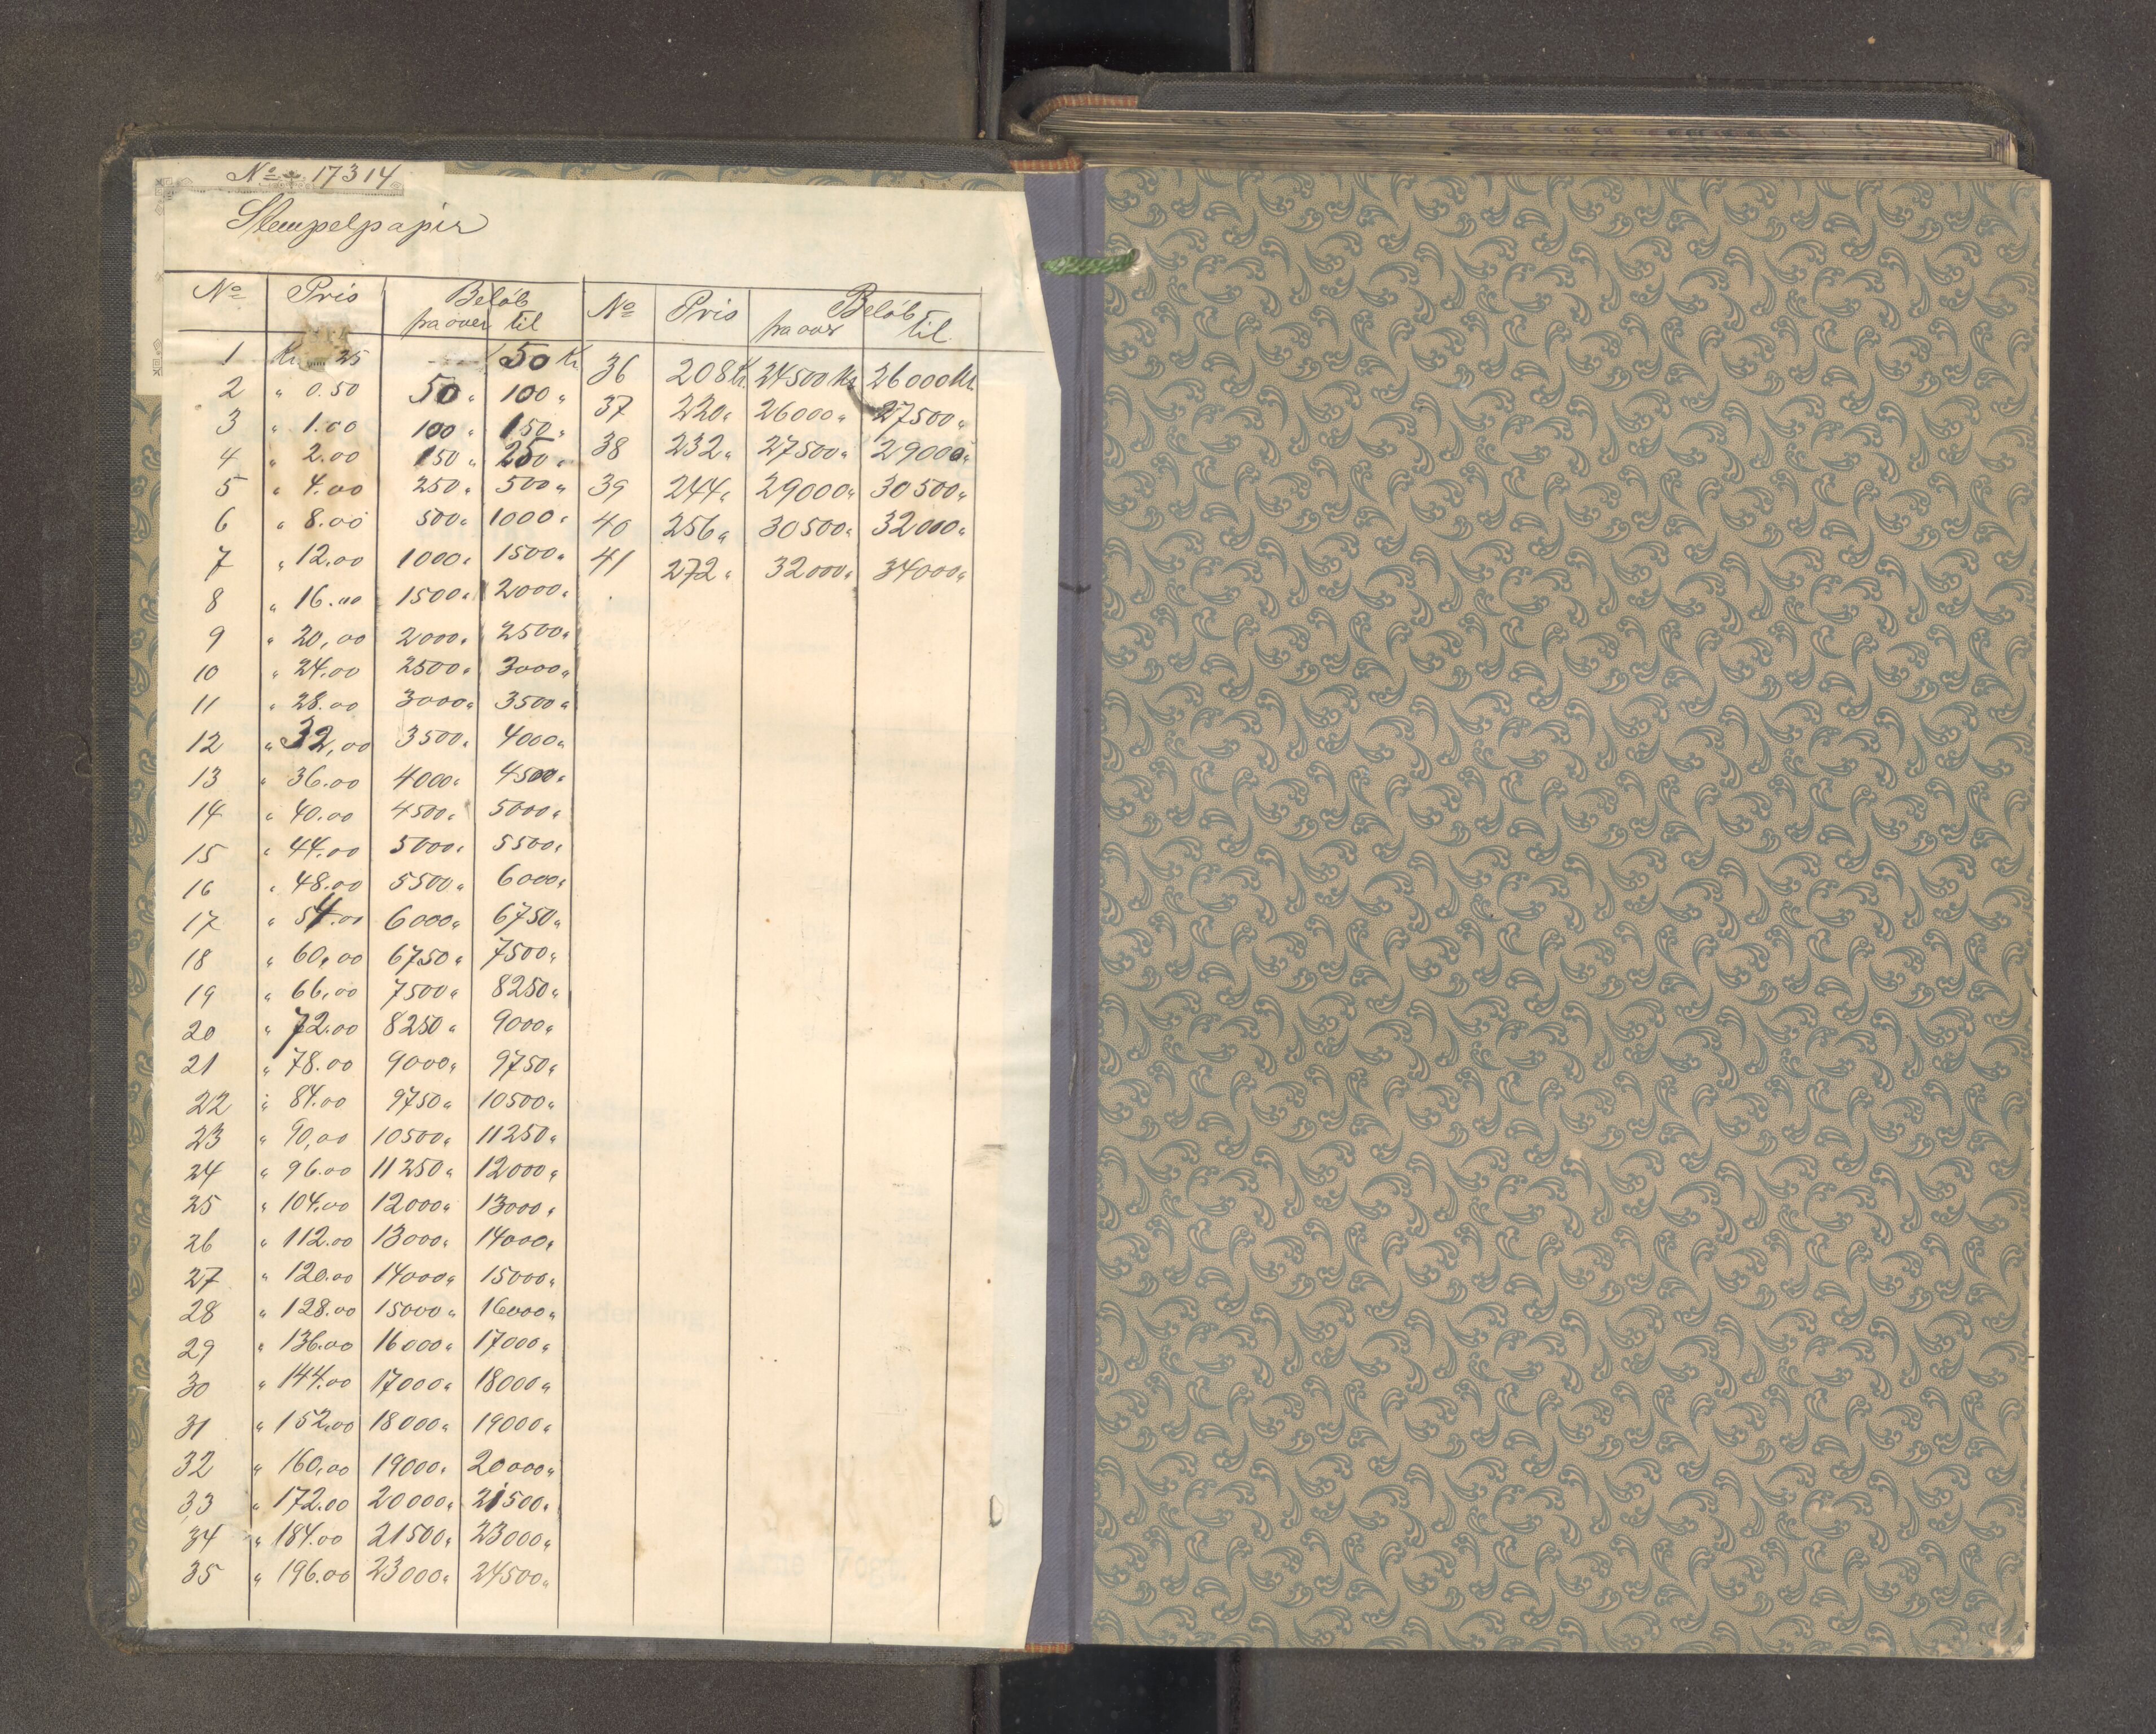 No 17314
Stempelpapir
No Pris Beløb
fra over til
1 Kr. 25 50 Kr
2 " 0.50 50 " 100 "
3 " 1.00 100 " 150 "
4 " 2.00 150 " 250 "
5 " 4.00 250 " 500 "
6 " 8.00 500 " 1000 "
7 " 12.00 1000 " 1500 "
8 " 16.00 1500 " 2000 "
9 " 20,00 2000 " 2500 "
10 " 24.00 2500 " 3000 "
11 " 28.00 3000 " 3500 "
12 " 32,00 3500 " 4000 "
13 " 36.00 4000 " 4500 "
14 " 40.00 4500 " 5000 "
15 " 44.00 5000 " 5500 "
16 " 48.00 5500 " 6000 "
17 " 54.00 6000 " 6750 "
18 " 60,00 6750 " 7500 "
19 " 66,00 7500 " 8250 "
20 " 72.00 8250 " 9000 "
21 " 78.00 9000 " 9750 "
22 " 84.00 9750 " 10500 "
23 " 90,00 10500 " 11250 "
24 " 96.00 11250 " 12000 "
25 " 104.00 12000 " 13000 "
26 " 112.00 13000 " 14000 "
27 " 120.00 14000 " 15000 "
28 " 128.00 15000 " 16000 "
29 " 136.00 16000 " 17000 "
30 " 144.00 17000 " 18000 "
31 " 152.00 18000 " 19000 "
32 " 160,00 19000 " 20000 "
33 " 172.00 20000 " 21500 "
34 " 184.00 21500 " 23000 "
35 " 196.00 23000 " 24500 "
No Pris Beløb
fra over til
36 208 Kr. 24500 Kr 26000 Kr
37 220 " 26000 " 27500 "
38 232 " 27500 " 29000 "
39 244 " 29000 " 30500 "
40 256 " 30500 " 32000 "
41 272 " 32000 " 34000 "